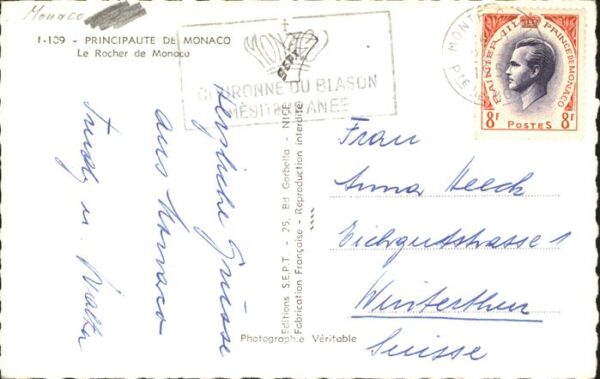 Monaco
1-109 - PRINCIPAUTE DE MONACO
Le Rocher de Monaco
MONACO
SEPT
COURONNE DU BLASON
MÉDITERRANÉE
RAINIER III PRINCE DE MONACO
8F POSTES 8F
Herzliche Grüsse
aus Monaco
Trudy u. Walter
Editions S.E.P.T. - 25, Bd Gorbella - NICE
Fabrication Française - Reproduction interdite
Photographie Véritable
Frau
Anna
Winterthur
Suisse